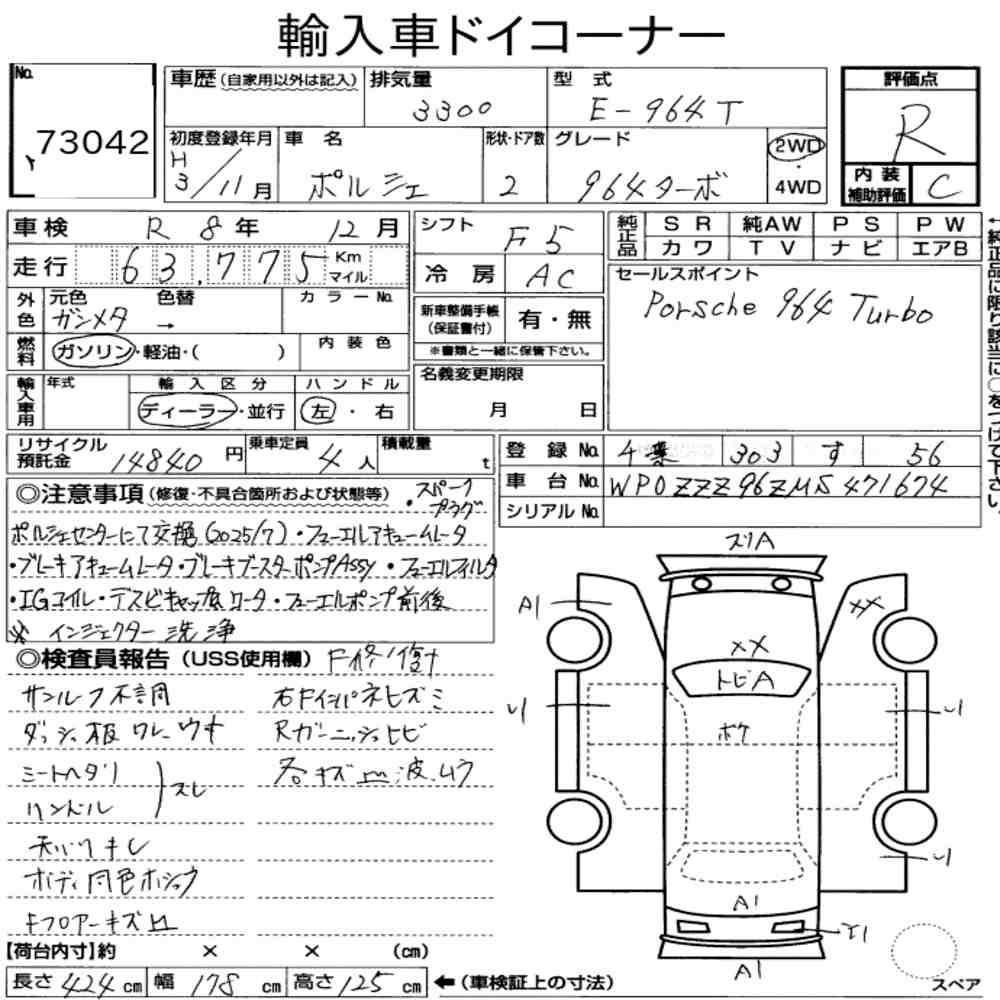 輸入車ドイコーナー
No. 73042
車歴(自家用以外は記入)
排気量 3300
型式 E-964T
評価点 R
初度登録年月 H 3/11月
車名 ポルシェ
形状・ドア数 2
グレード 964ターボ
2WD・4WD
内装補助評価 C
車検 R 8年 12月
シフト F5
純正品 SR 純AW PS PW
カワ TV ナビ エアB
走行 63,775 Km マイル
冷房 AC
セールスポイント
Porsche 964 Turbo
外色 元色 ガンメタ → 色替 カラーNo.
新車整備手帳(保証書付) 有・無
※書類と一緒に保管下さい。
燃料 ガソリン・軽油・( )
内装色
名義変更期限 月 日
輸入車用 年式 輸入区分 ハンドル
ディーラー・並行 左・右
←純正品に限り該当に○をつけて下さい。
リサイクル預託金 14840円
乗車定員 4人
積載量 t
登録No. 303 す 56
車台No. WP0ZZZ96ZMS471674
シリアルNo.
◎注意事項(修復・不具合箇所および状態等)
・スパークプラグ
ポルシェセンターにて交換(2025/7)・フューエルアキュームレータ
・ブレーキアキュームレータ・ブレーキブースターポンプASSY・フューエルフィルタ
・IGコイル・デスビキャップ&ロータ・フューエルポンプ前後
※ インジェクター洗浄
◎検査員報告(USS使用欄)
サンルーフ不調
右Fインパネヒズミ
ダッシュ板ワレ、ウキ
Rガーニッシュヒビ
シートヘタリ
各キズ凹、波、ムラ
ハンドル
スレ
天バリキレ
ボディ同色ホシュウ
Fフロアーキズ凹
【荷台内寸】約 × × (cm)
長さ 424 cm 幅 178 cm 高さ 125 cm
←(車検証上の寸法)
スリA
A1
XX
XX
トビA
ボケ
A1
A1
スペア